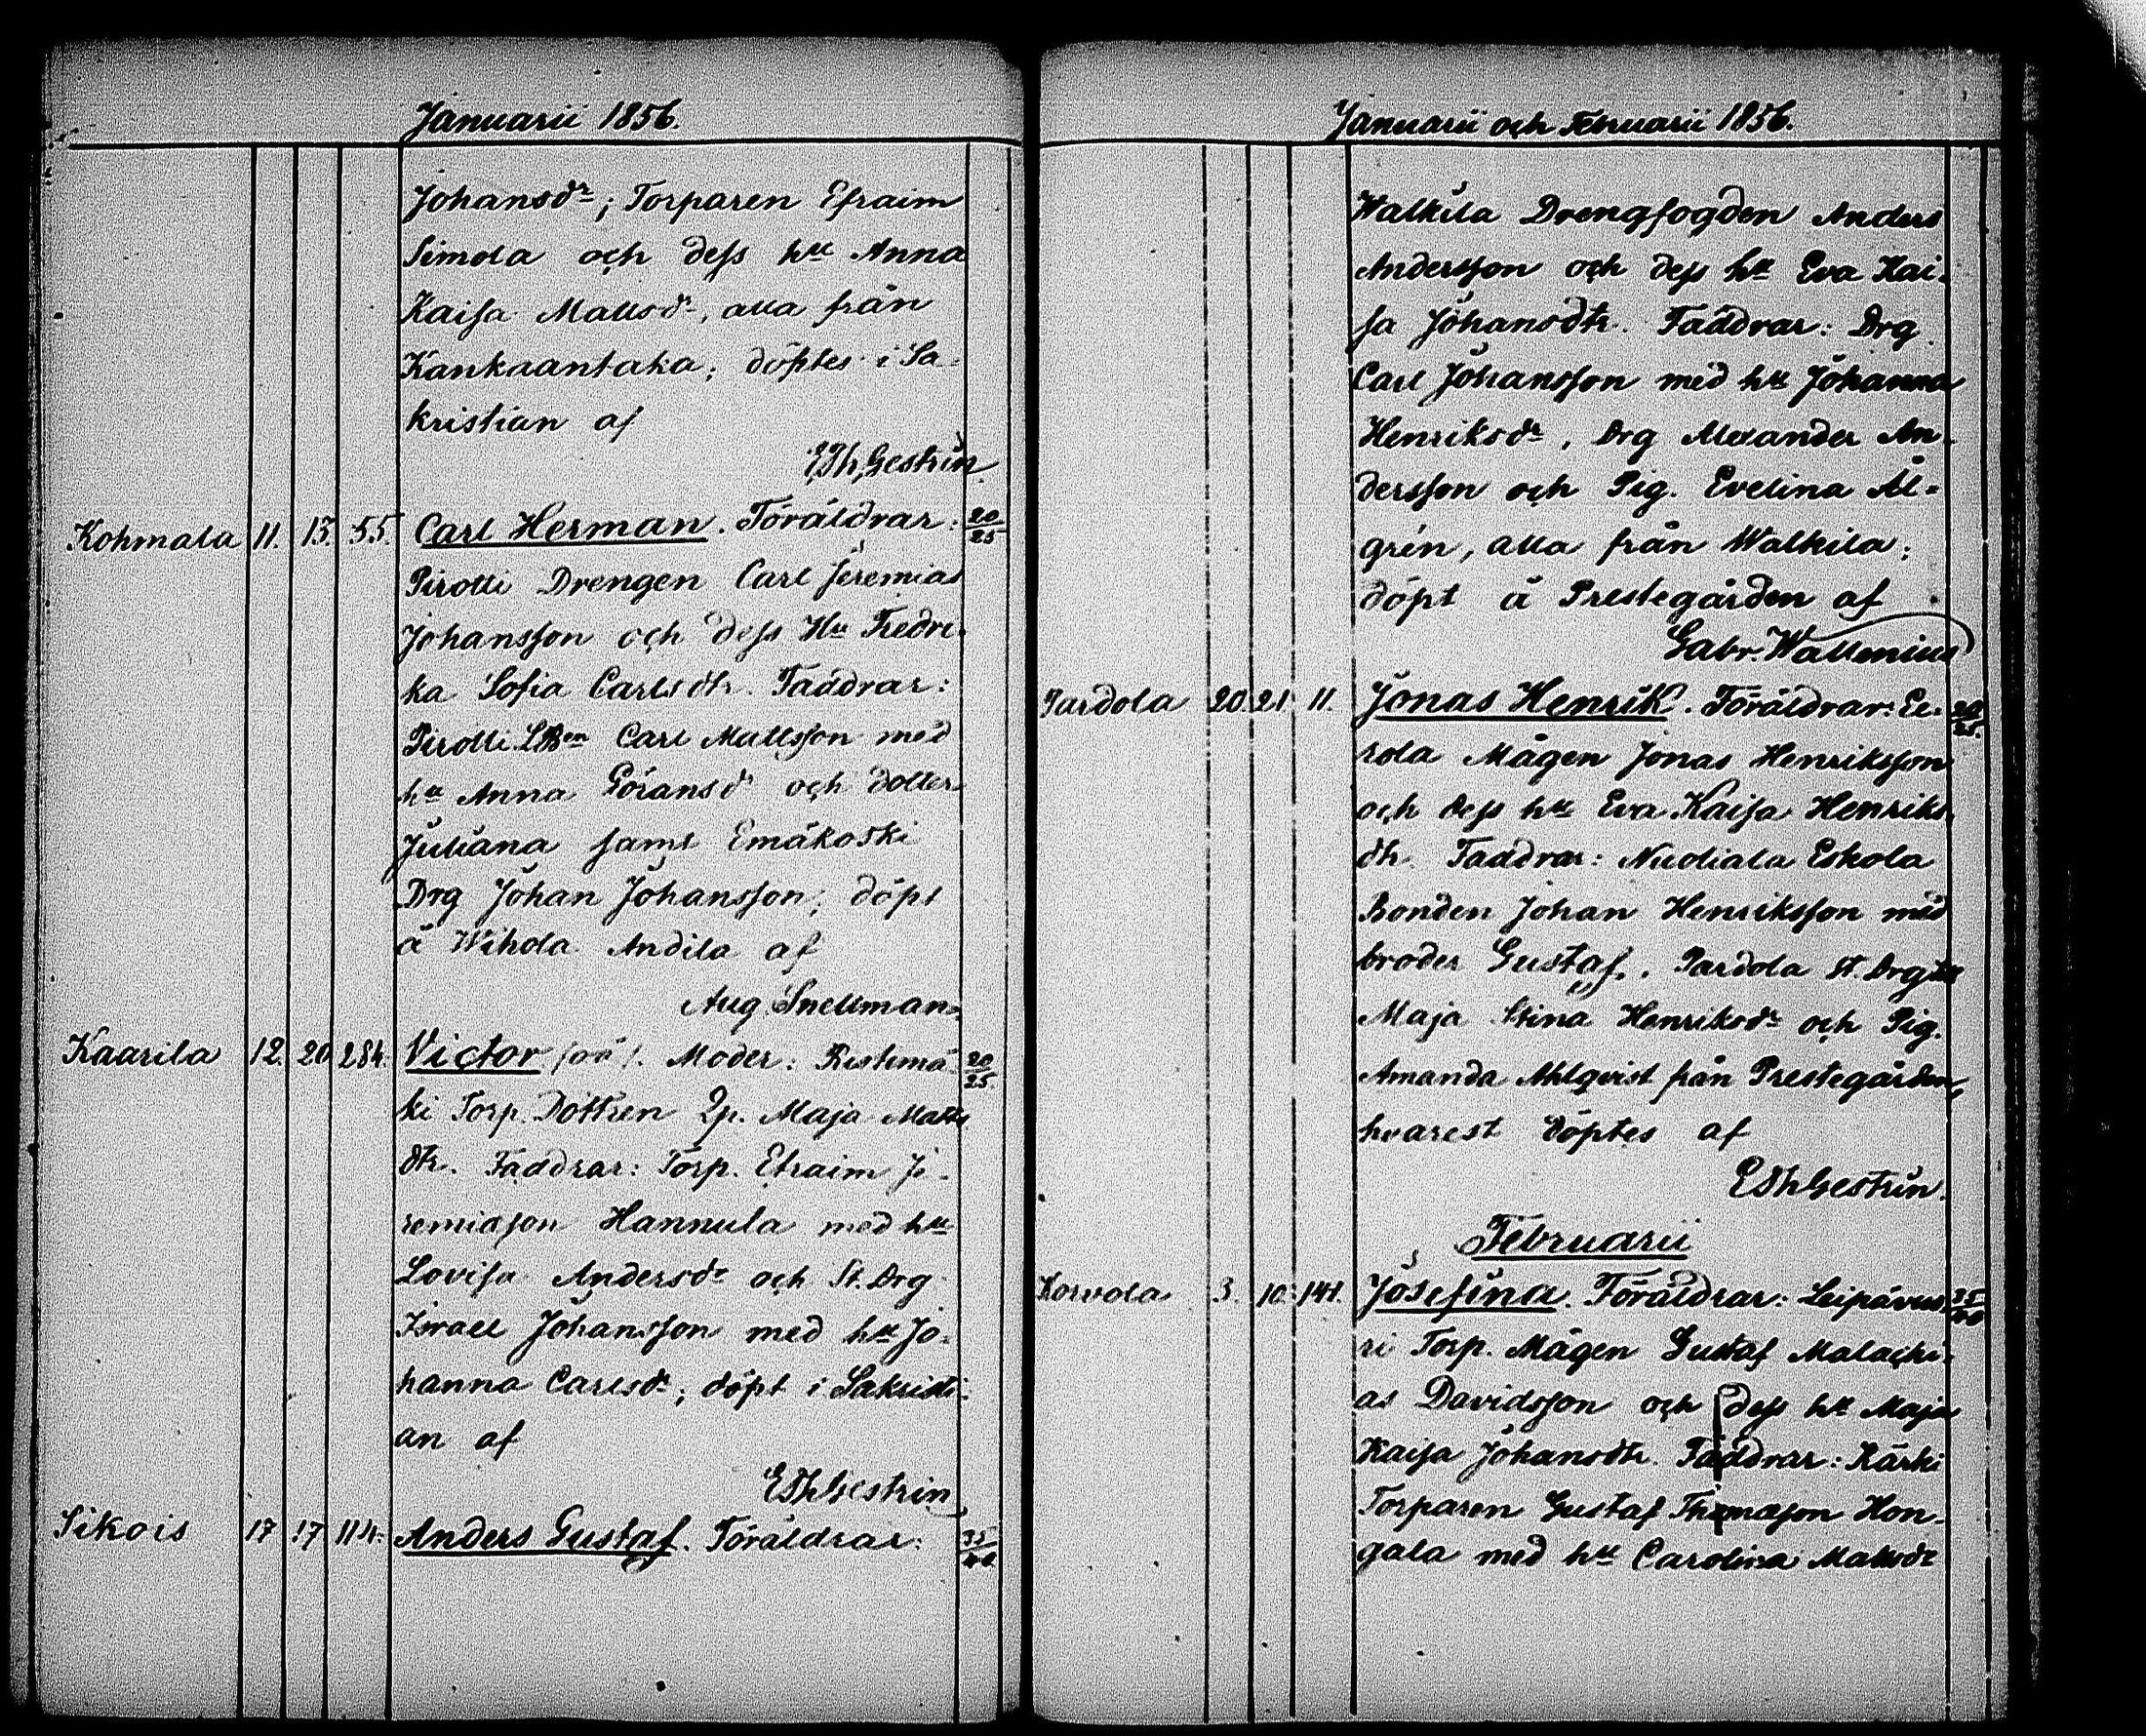 Januarii 1856.
Johansdr; Torparen Efraim
Simola och dess hu Anna
Kaisa Mattsdr, alla från
Kankaantaka; döptes i Sa-
kristian af
E Th Gestrin
Kohmala 11. 13. 55. Carl Herman. Föräldrar: 20/25
Pirotti Drengen Carl Jeremias
Johansson och dess Hu Fredri-
ka Sofia Carlsdtr. Faddrar:
Pirotti Carl Mattsson med
hu Anna Göransdr och dotter
Juliana samt Emäkoski
Drg Johan Johansson; döpt
å Wihola Andila af
Aug. Snellman.
Kaarila 12. 20 284. Victor /oä/. Moder: Ristimä- 20/25
ki Torp. Dottren Qp. Maja Matts
dtr. Faddrar: Torp. Efraim Je-
remiasson Hannula med hu
Lovisa Andersdr och St. Drg
Israel Johansson med hu Jo-
hanna Carlsdr; döpt i Sakristi-
an af
E Th Gestrin
Sikois 17 17 114. Anders Gustaf. Föräldrar: 35/40
Januarii och Februarii 1856.
Walkila Drengfogden Anders
Andersson och dess hu Eva Kai-
sa Johansdtr. Faddrar: Drg
Carl Johansson med hu Johanna
Henriksdr, Drg Alexander An-
dersson och Pig. Evelina Ål-
grén, alla från Walkila;
döpt å Prestegården af
Gabr. Wallenius
Pardola 20. 21. 11. Jonas Henrik. Föräldrar: Ee- 20/25.
rola Mågen Jonas Henriksson
och dess hu Eva Kaisa Henriks
dtr. Faddrar: Nuoliala Eskola
Bonden Johan Henriksson med
broder Gustaf, Pardola St. Drg
Maja Stina Henriksdr och Pig.
Amanda Ahlqvist från Prestegården,
hvarest döptes af
E Th Gestrin.
Februarii
Korvola 3. 10. 141. Josefina. Föräldrar: Leipävuo- 35/40
ri Torp. Mågen Gustaf Malachi-
as Davidsson och dess hu Maja
Kaisa Johansdtr. Faddrar: Kärki
Torparen Gustaf Thomasson Hon-
gala med hu Carolina Mattsdr